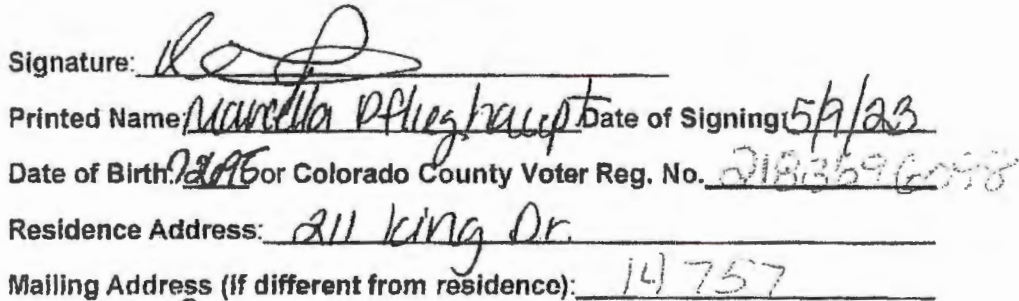 Signature:
Printed Name: Marcella Pflieghaupt Date of Signing: 5/9/23
Date of Birth: or Colorado County Voter Reg. No.
Residence Address: 211 King Dr.
Mailing Address (if different from residence): 14757